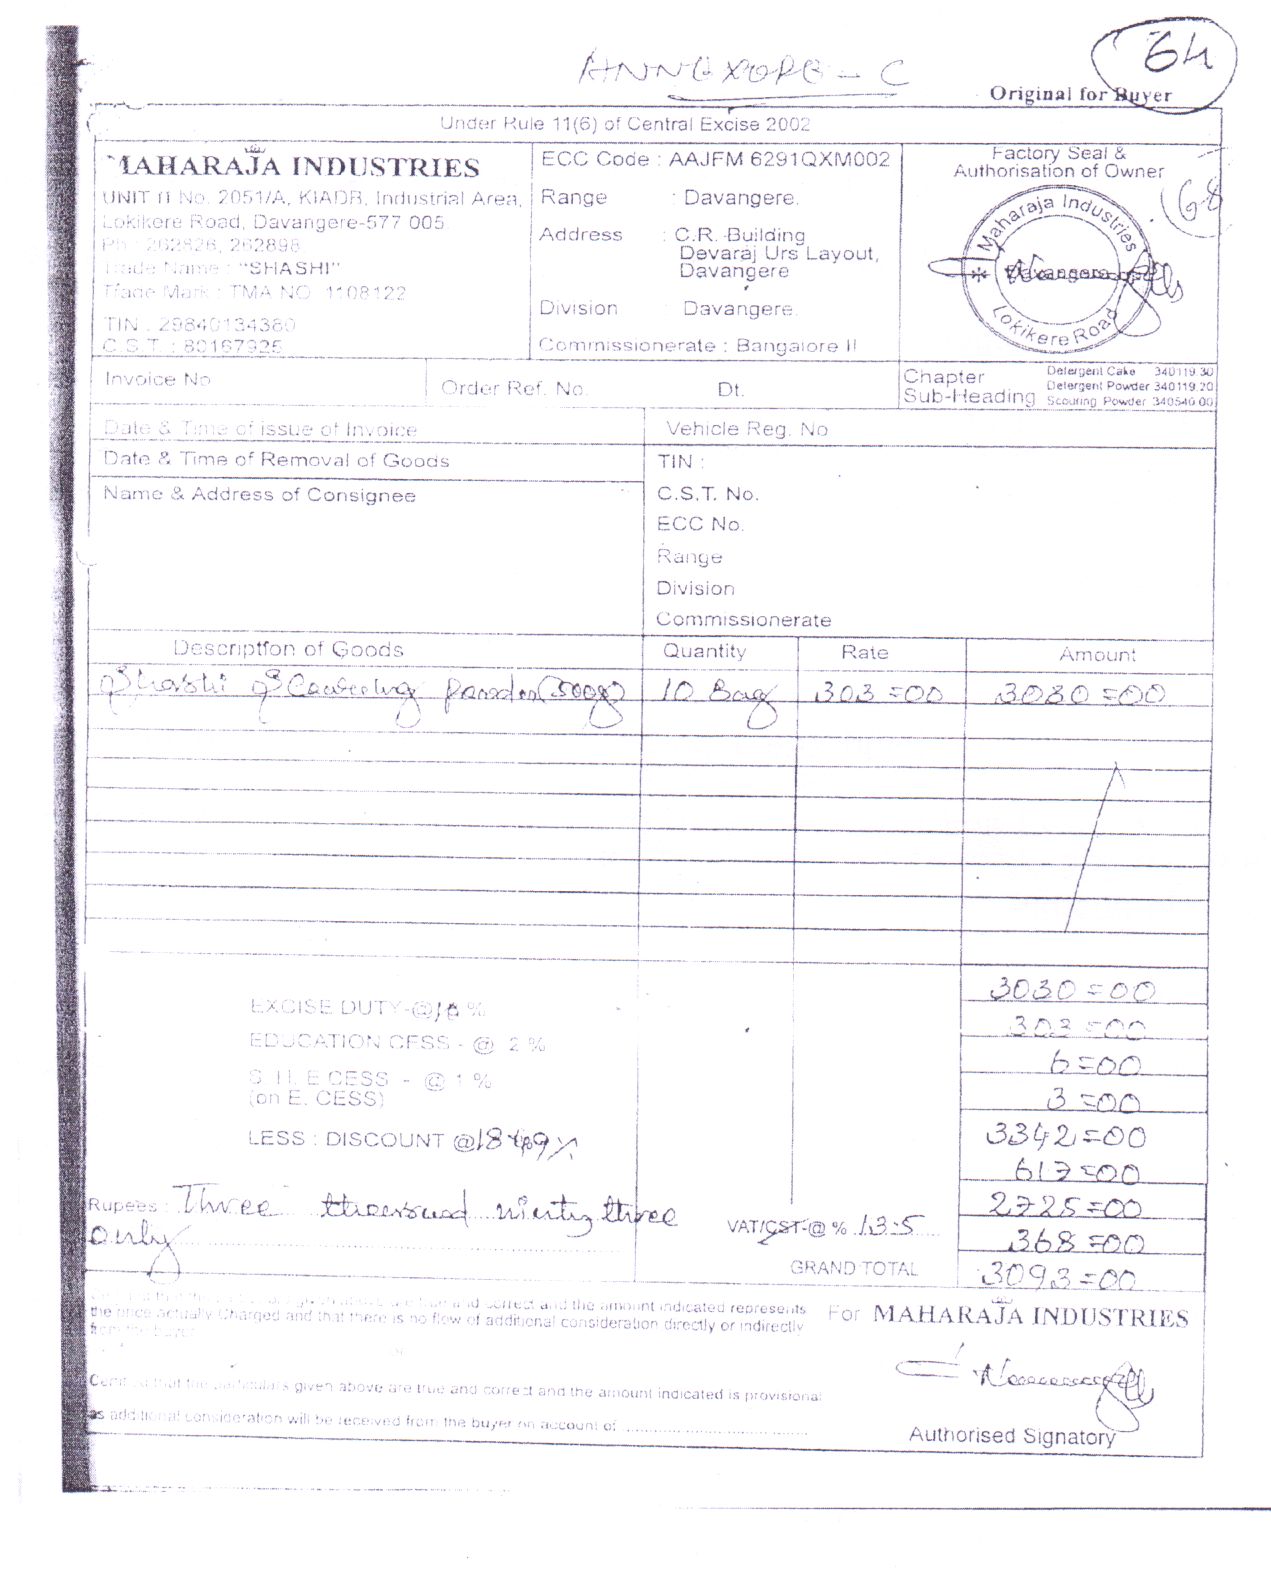 ANNEXURE - C
64
Original for Buyer
Under Rule 11(6) of Central Excise 2002
MAHARAJA INDUSTRIES
UNIT II No. 2051/A, KIADB, Industrial Area,
Lokikere Road, Davangere-577 005
Ph : 262826, 262898
Trade Name : "SHASHI"
Trade Mark : TMA NO 1108122
TIN : 29840134380
C.S.T. : 80167925
ECC Code : AAJFM 6291QXM002
Range : Davangere.
Address : C.R. Building
Devaraj Urs Layout,
Davangere
Division Davangere.
Commissionerate : Bangalore II
Factory Seal &
Authorisation of Owner
68
Maharaja Industries
Davangere
Lokikere Road
Invoice No
Order Ref. No. Dt.
Chapter
Sub-Heading
Detergent Cake 340119.30
Detergent Powder 340119.20
Scouring Powder 340540.00
Date & Time of issue of Invoice
Vehicle Reg. No
Date & Time of Removal of Goods
TIN :
Name & Address of Consignee
C.S.T. No.
ECC No.
Range
Division
Commissionerate
Description of Goods Quantity Rate Amount
Shashi (500g) 10 Bag 303=00 3030=00
3030=00
EXCISE DUTY-@10 % 303=00
EDUCATION CESS - @ 2 % 6=00
S. H. E CESS - @ 1 % 3=00
(on E. CESS)
LESS : DISCOUNT @18 % 3342=00
617=00
Rupees : Three thousand ninty three 2725=00
only
VAT/CST-@ % 13.5 368=00
GRAND TOTAL 3093=00
true and correct and the amount indicated represents
the price actually Charged and that there is no flow of additional consideration directly or indirectly
from the buyer
For MAHARAJA INDUSTRIES
Certified that the particulars given above are true and correct and the amount indicated is provisional
as additional consideration will be received from the buyer on account of
Authorised Signatory